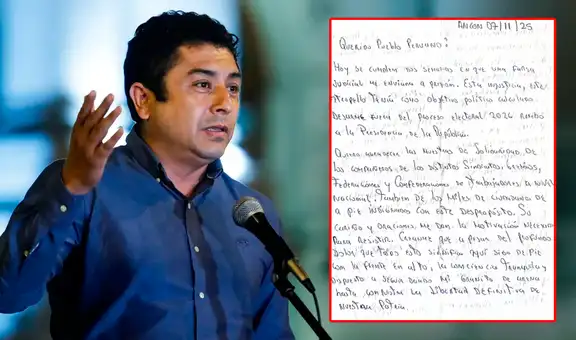 Ancon 07/11/25
Querido Pueblo Peruano:
Hoy se cumplen dos semanas en que una farsa
Judicial me enviara a prision. Esta injusticia, este
Atropello Tenía como objetivo político calculado
Dejarme fuera del proceso electoral 2026 rumbo
a la Presidencia de la República.
Quiero agradecer las muestras de Solidaridad de
los compañeros de los distintos Sindicatos, Gremios,
Federaciones y Confederaciones de Trabajadores a nivel
Nacional. Tambien de los miles de ciudadanos de
a pie indignados con este despropósito. Su
cariño y oraciones, me dan la motivación necesaria
Para Resistir. Creanme que a pesar del profundo
Dolor que todo esto significa aquí sigo de pie
con la frente en alto, la conciencia tranquila y
dispuesto a seguir dando mi granito de arena
hasta conquistar la Libertad Definitiva de
nuestra Patria.